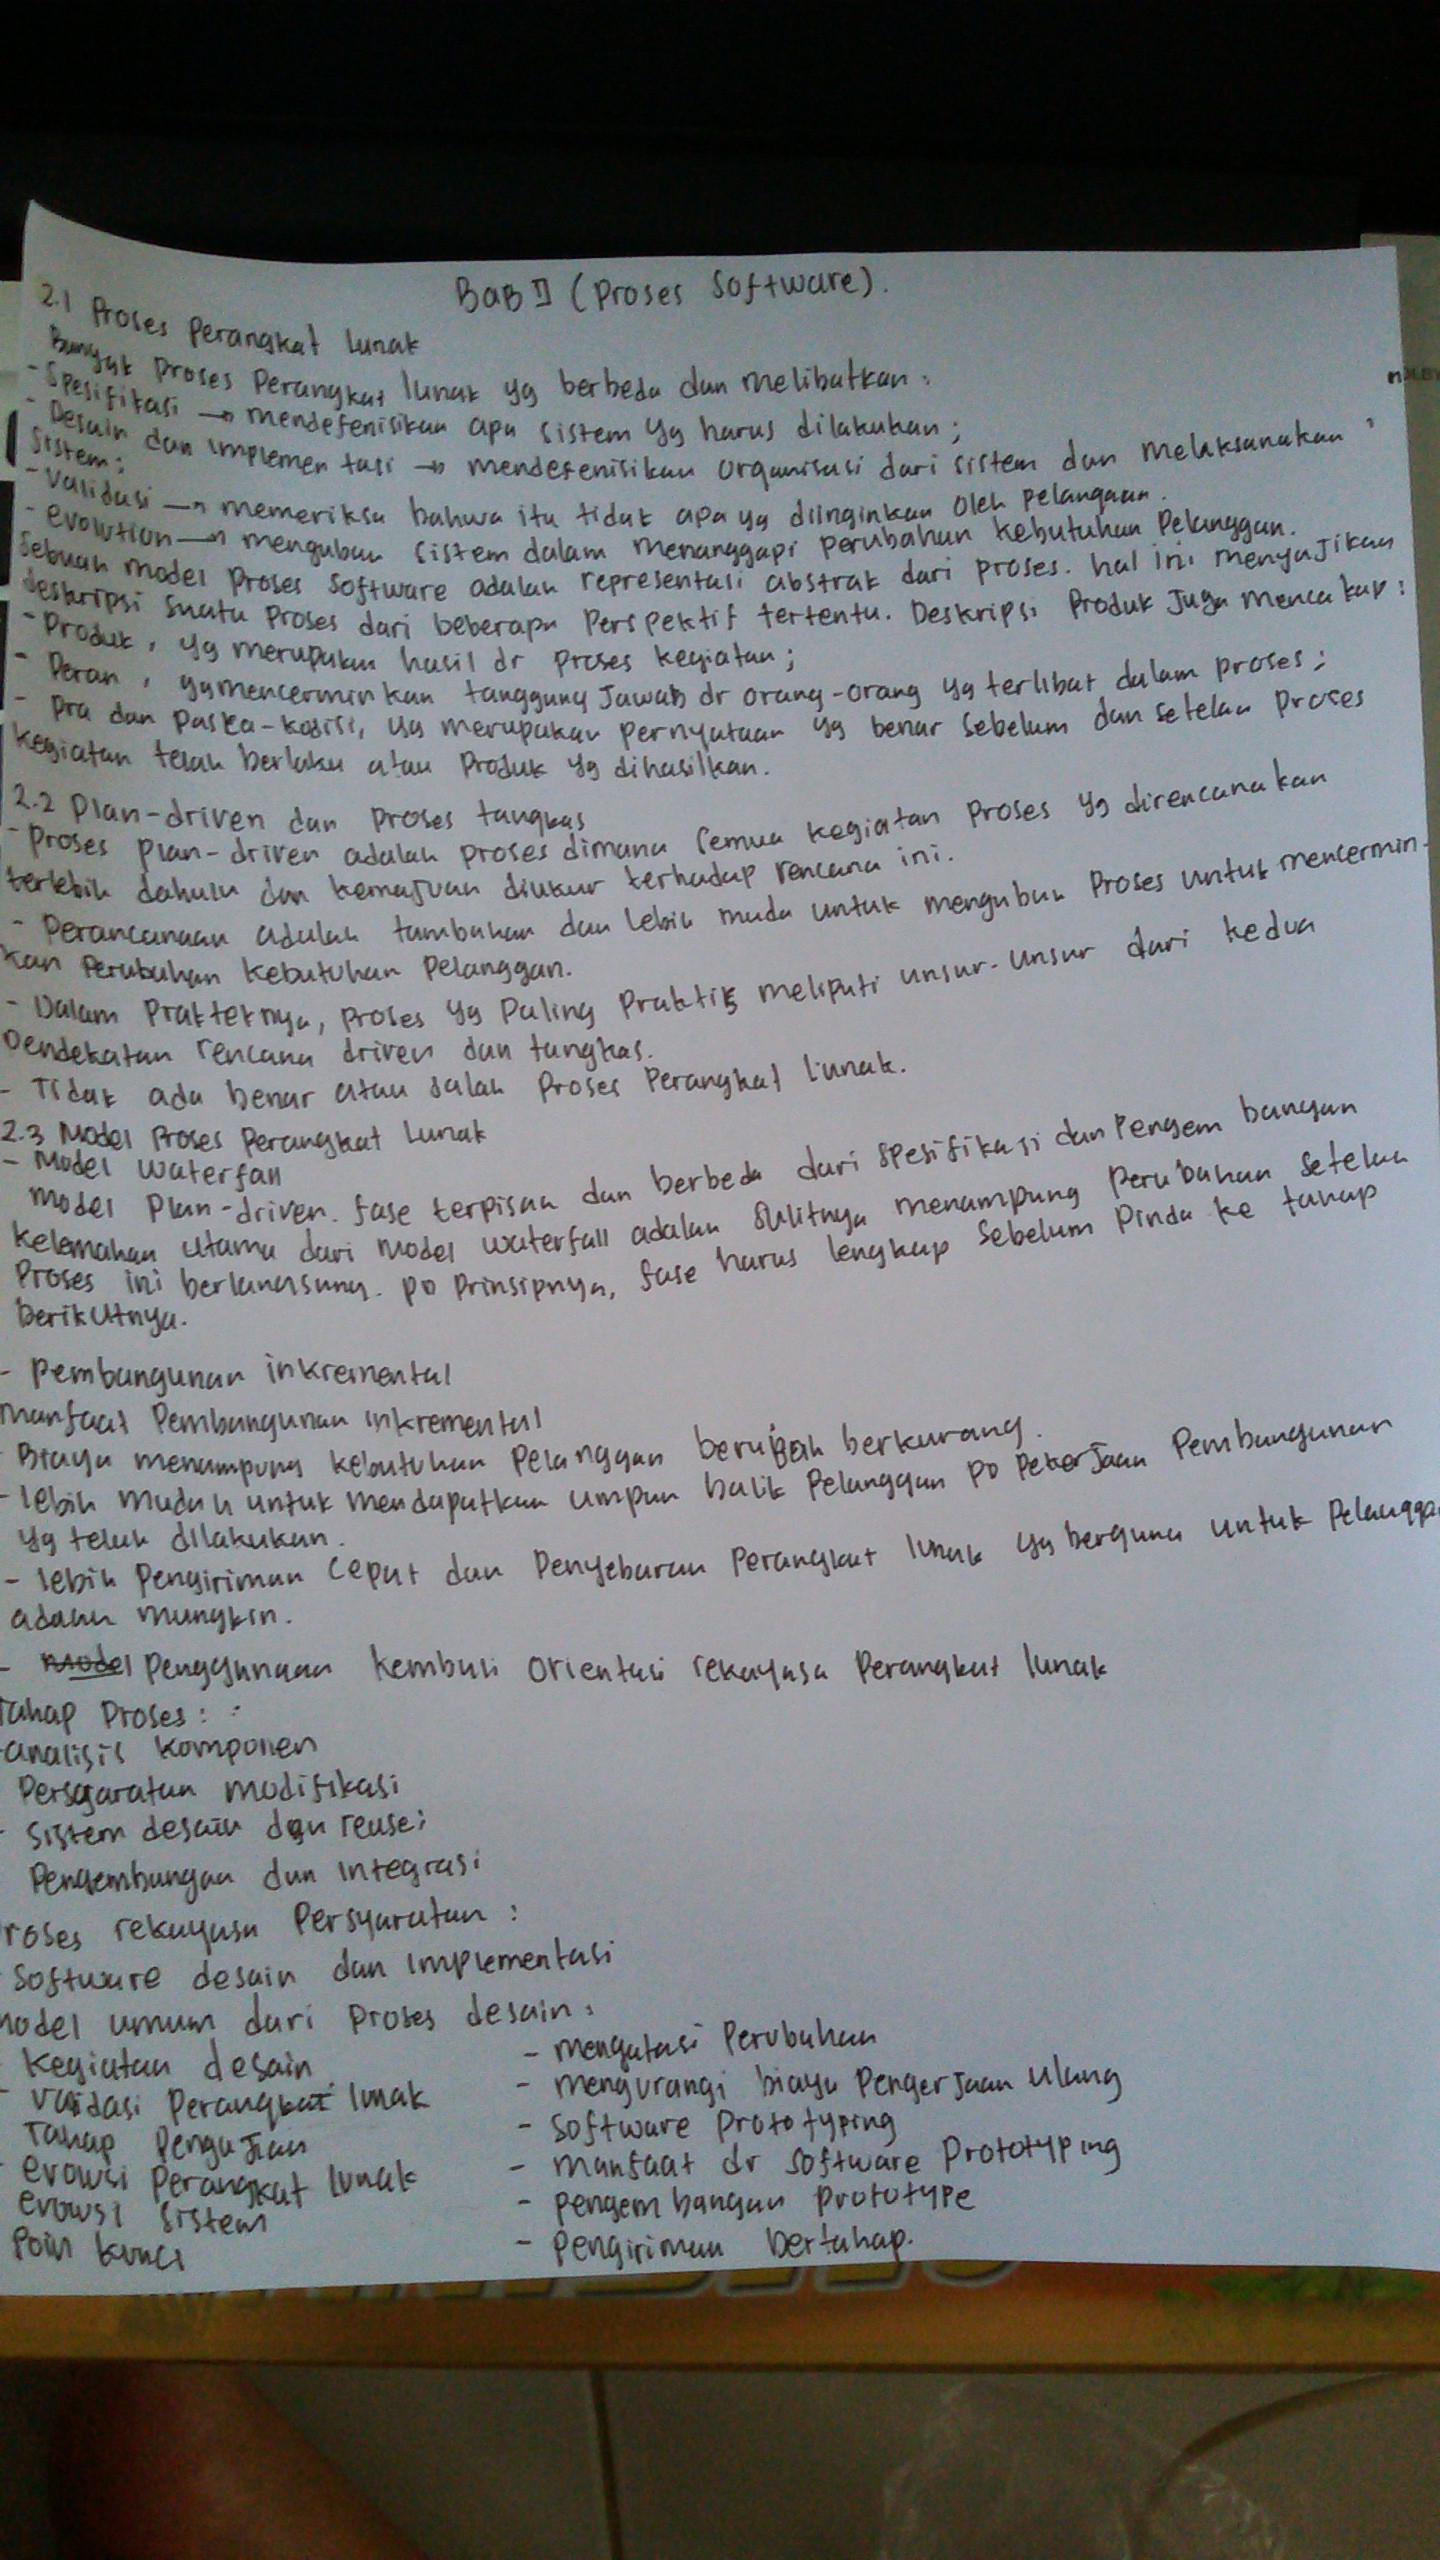 BAB II (Proses Software).
2.1 Proses Perangkat lunak
Banyak Proses Perangkat lunak yg berbeda dan melibatkan:
- Spesifikasi → mendefenisikan apa sistem yg harus dilakukan;
- Desain dan implementasi → mendefenisikan organisasi dari sistem dan melaksanakan
sistem;
- Validasi → memeriksa bahwa itu tidak apa yg diinginkan oleh pelangaan.
- evolution → mengubah sistem dalam menanggapi perubahan kebutuhan Pelanggan.
Sebuah model Proses Software adalah representasi abstrak dari proses. hal ini menyajikan
deskripsi suatu Proses dari beberapa Perspektif tertentu. Deskripsi Produk Juga mencakup:
- Produk, yg merupakan hasil dr proses kegiatan;
- Peran, yg mencerminkan tanggung Jawab dr orang-orang yg terlibat dalam proses;
- Pra dan Paska-kodisi, yg merupakan pernyataan yg benar sebelum dan setelah Proses
kegiatan telah berlaku atau Produk yg dihasilkan.
2.2 Plan-driven dan Proses tangkas
- Proses plan-driven adalah proses dimana semua kegiatan Proses yg direncanakan
terlebih dahulu dan kemajuan diukur terhadap rencana ini.
- Perancanaan adalah tambahan dan lebih muda untuk mengubah Proses untuk mencermin-
kan Perubahan kebutuhan Pelanggan.
- Dalam Prakteknya, Proses yg Paling Praktis meliputi unsur-unsur dari kedua
Pendekatan rencana driven dan tangkas.
- Tidak ada benar atau salah Proses Perangkat lunak.
2.3 Model Proses Perangkat Lunak
- Model Waterfall
Model Plan-driven. fase terpisah dan berbeda dari spesifikasi dan Pengembangan
Kelemahan utama dari model waterfall adalah sulitnya menampung Perubahan setelah
Proses ini berlangsung. Pd Prinsipnya, fase harus lengkap sebelum pinda ke tahap
berikutnya.
- Pembangunan inkremental
manfaat Pembangunan inkremental
- Biaya menampung kebutuhan Pelanggan berubah berkurang.
- lebih mudah untuk mendapatkan umpan balik Pelanggan pd Pekerjaan Pembangunan
yg telah dilakukan.
- lebih Pengiriman cepat dan Penyebaran Perangkat lunak yg berguna untuk Pelangga
adalah mungkin.
- model Penggunaan kembali orientasi rekayasa Perangkat lunak
Tahap Proses:
- analisis komponen
Persyaratan modifikasi
- Sistem desain dgn reuse;
Pengembangan dan Integrasi
roses rekayasa Persyaratan:
- Software desain dan implementasi
model umum dari Proses desain:
- Kegiatan desain
- Validasi Perangkat lunak
Tahap Pengujian
- evolusi Perangkat lunak
evolusi Sistem
Poin kunci
- mengatasi Perubahan
- mengurangi biaya Pengerjaan Ulang
- Software Prototyping
- manfaat dr Software Prototyping
- pengembangan prototype
- Pengiriman bertahap.